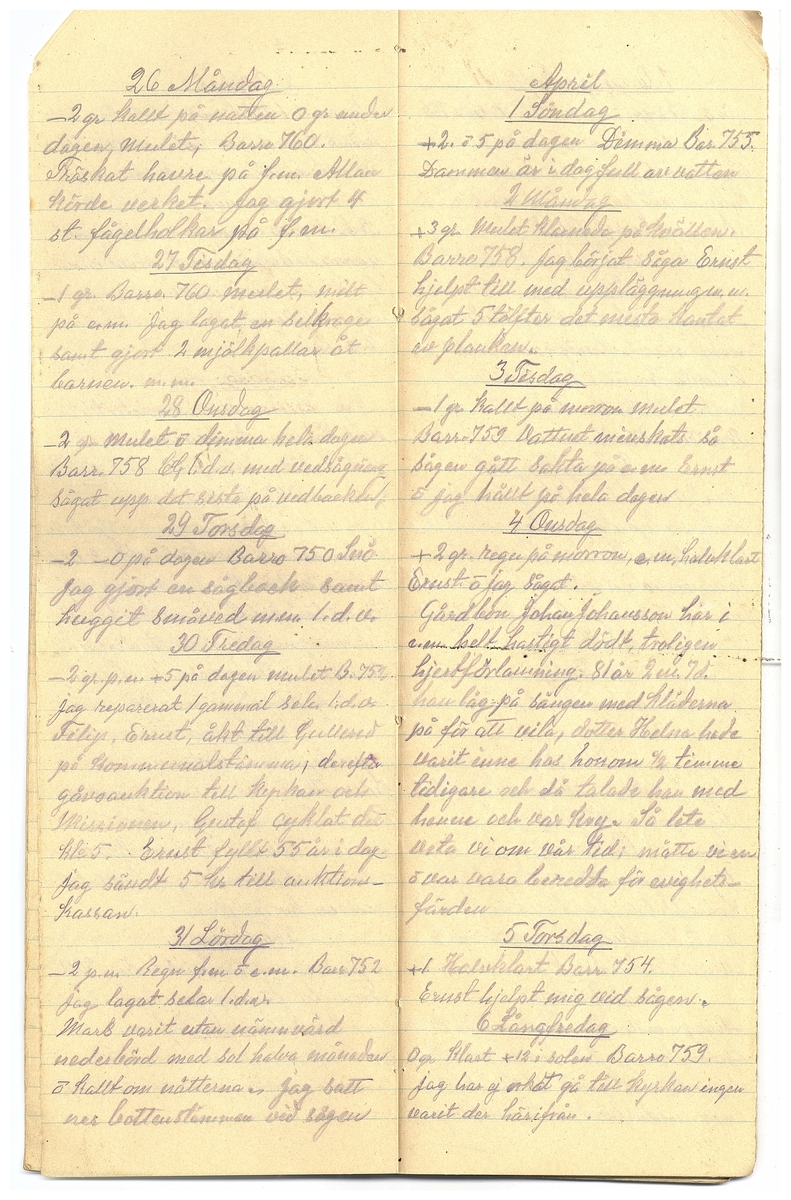 26 Måndag
-2 gr kallt på natten 0 gr under
dagen, mulet, Barro 760.
Tröskat havre på f.m. Allan
körde verket. Jag gjort 4
st. fågelholkar på f.m.
27 Tisdag
-1 gr. Barro. 760 mulet, milt
på e.m. Jag lagat en selkrage
samt gjort 2 mjölkpallar åt
barnen. m.m.
28 Onsdag
-2 gr mulet o dimma hela dagen
Barr. 758 t.d.v. med vedsågning
sågat upp det sista på vedbacken,
29 Torsdag
-2 -0 på dagen Barro 750 Snö
Jag gjort en sågbock samt
hugget småved m.m. t.d.v.
30 Fredag
-2 gr. p.n. +5 på dagen mulet B. 752
Jag reparerat 1 gammal sele t.d.v.
Filip, Ernst, åkt till
på komunalstämma, derefter
gåvoauktion till Kyrkan och
Missionen, Gustaf cyklat dit
kl. 5. Ernst fyllt 55 år i dag
Jag sändt 5 kr till auktions-
kassan.
31 Lördag
-2 p.n. Regn f.m. o e.m. Barr 752
Jag lagat selar t.d.v.
Mars varit utan nämnvärd
nederbörd med sol halva månaden
o kallt om nätterna. Jag satt
ner bottenstämman vid sågen
April
1 Söndag
+2. o 5 på dagen Dimma Bar. 755.
Dammen är i dag full av vatten
2 Måndag
+3 gr. Mulet klarnade på kvällen.
Barro 758. Jag börjat såga Ernst
hjelpt till med uppläggning m.m.
sågat 5 tolfter det mesta kantat
av plankan.
3 Tisdag
-1 gr. kallt på morron mulet
Barr. 759 Vattnet minskats så
sågen gått sakta på e.m. Ernst
o jag hållt på hela dagen
4 Onsdag
+2 gr. regn på morron, e.m. halvklart
Ernst o jag sågat.
Gårdbon Johan Johansson här i
e.m. helt hastigt dödt, troligen
hjertförlamning. 81 år 2 m. 7 d.
han låg på sängen med kläderna
på för att vila, dotter Helna hade
varit inne hos honom ½ timme
tidigare och då talade han med
henne och var kry. Så lite
veta vi om vår tid; måtte vi en
o var vara beredda för evighets-
färden
5 Torsdag
+1 Halvklart Barr. 754.
Ernst hjelpt mig vid sågen.
6 Långfredag
0 gr. klart +12 i solen Barro 759.
Jag har ej orkat gå till kyrkan ingen
varit der härifrån.